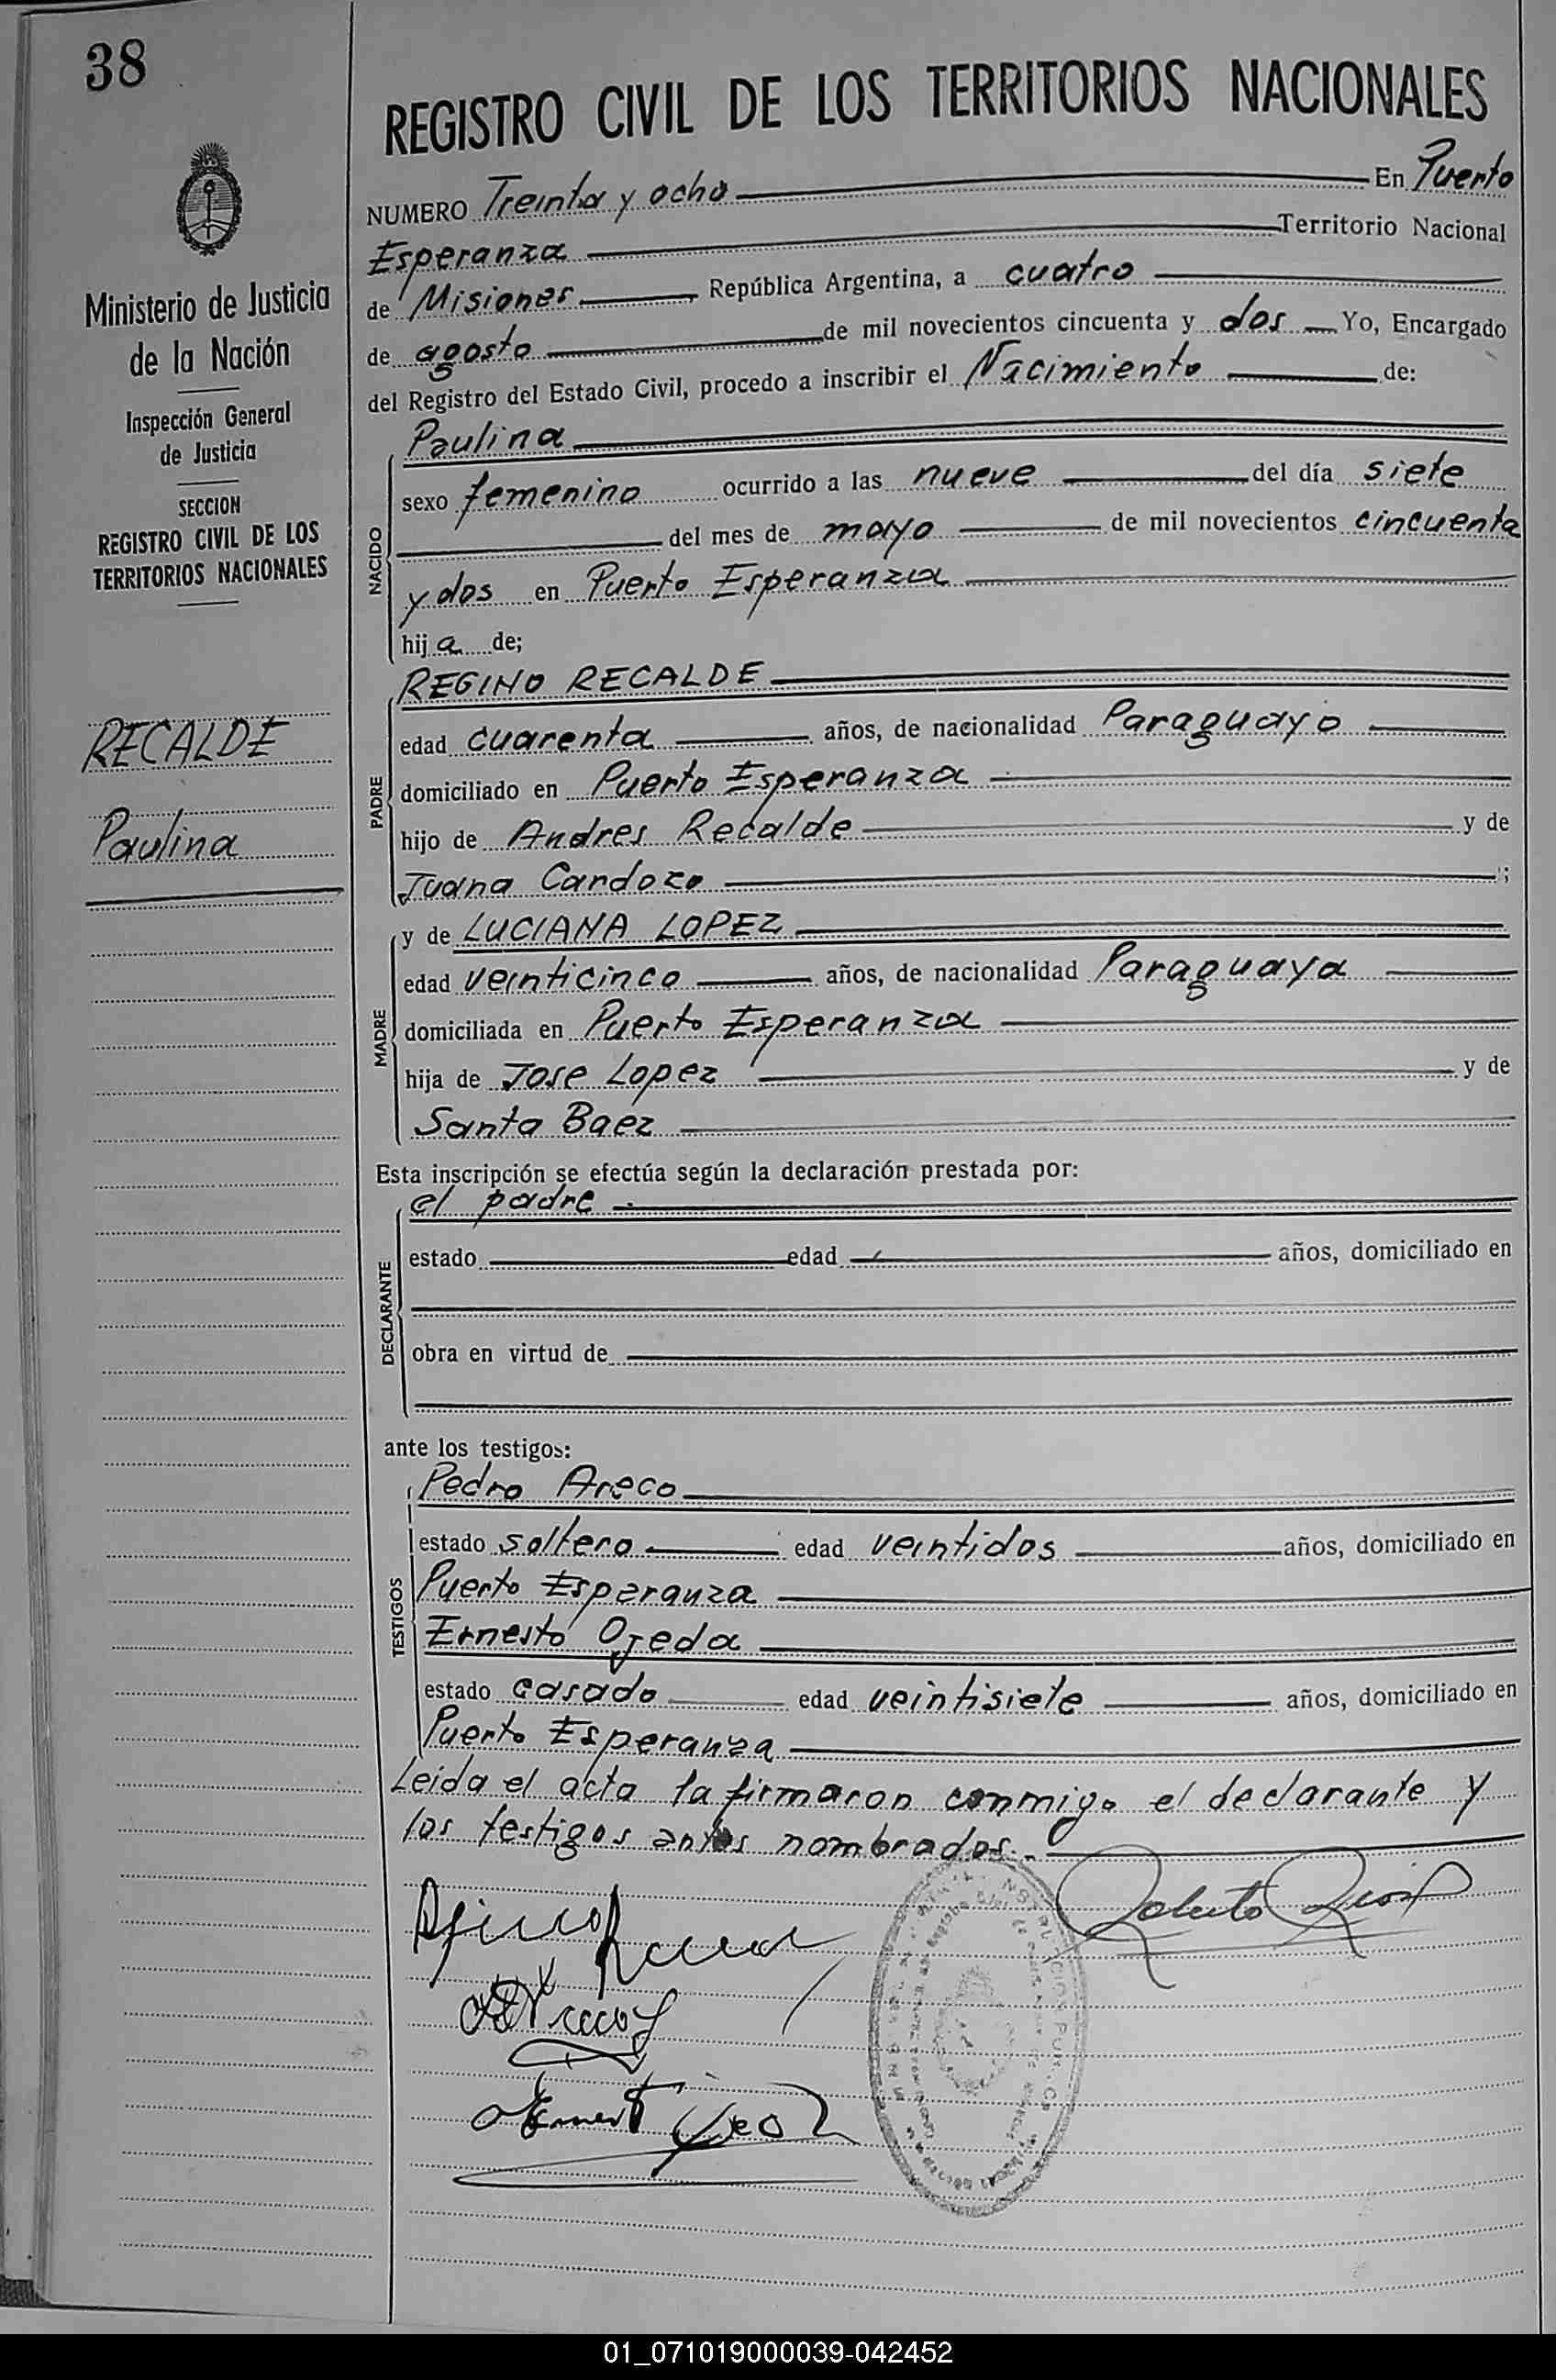 38
REGISTRO CIVIL DE LOS TERRITORIOS NACIONALES
Ministerio de Justicia
de la Nación
Inspección General
de Justicia
SECCION
REGISTRO CIVIL DE LOS
TERRITORIOS NACIONALES
RECALDE
Paulina
NUMERO Treinta y ocho En Puerto
Esperanza Territorio Nacional
de Misiones, República Argentina, a cuatro
de agosto de mil novecientos cincuenta y dos Yo, Encargado
del Registro del Estado Civil, procedo a inscribir el Nacimiento de:
NACIDO
Paulina
sexo femenino ocurrido a las nueve del día siete
del mes de mayo de mil novecientos cincuenta
y dos en Puerto Esperanza
hija de;
PADRE
REGINO RECALDE
edad cuarenta años, de nacionalidad Paraguayo
domiciliado en Puerto Esperanza
hijo de Andres Recalde y de
Juana Cardozo ;
MADRE
y de LUCIANA LOPEZ
edad veinticinco años, de nacionalidad Paraguaya
domiciliada en Puerto Esperanza
hija de Jose Lopez y de
Santa Baez
Esta inscripción se efectúa según la declaración prestada por:
DECLARANTE
el padre
estado edad años, domiciliado en
obra en virtud de
ante los testigos:
TESTIGOS
Pedro Areco
estado soltero edad veintidos años, domiciliado en
Puerto Esperanza
Ernesto Ojeda
estado casado edad veintisiete años, domiciliado en
Puerto Esperanza
Leida el acta la firmaron conmigo el declarante y
los testigos antes nombrados.
01_071019000039-042452